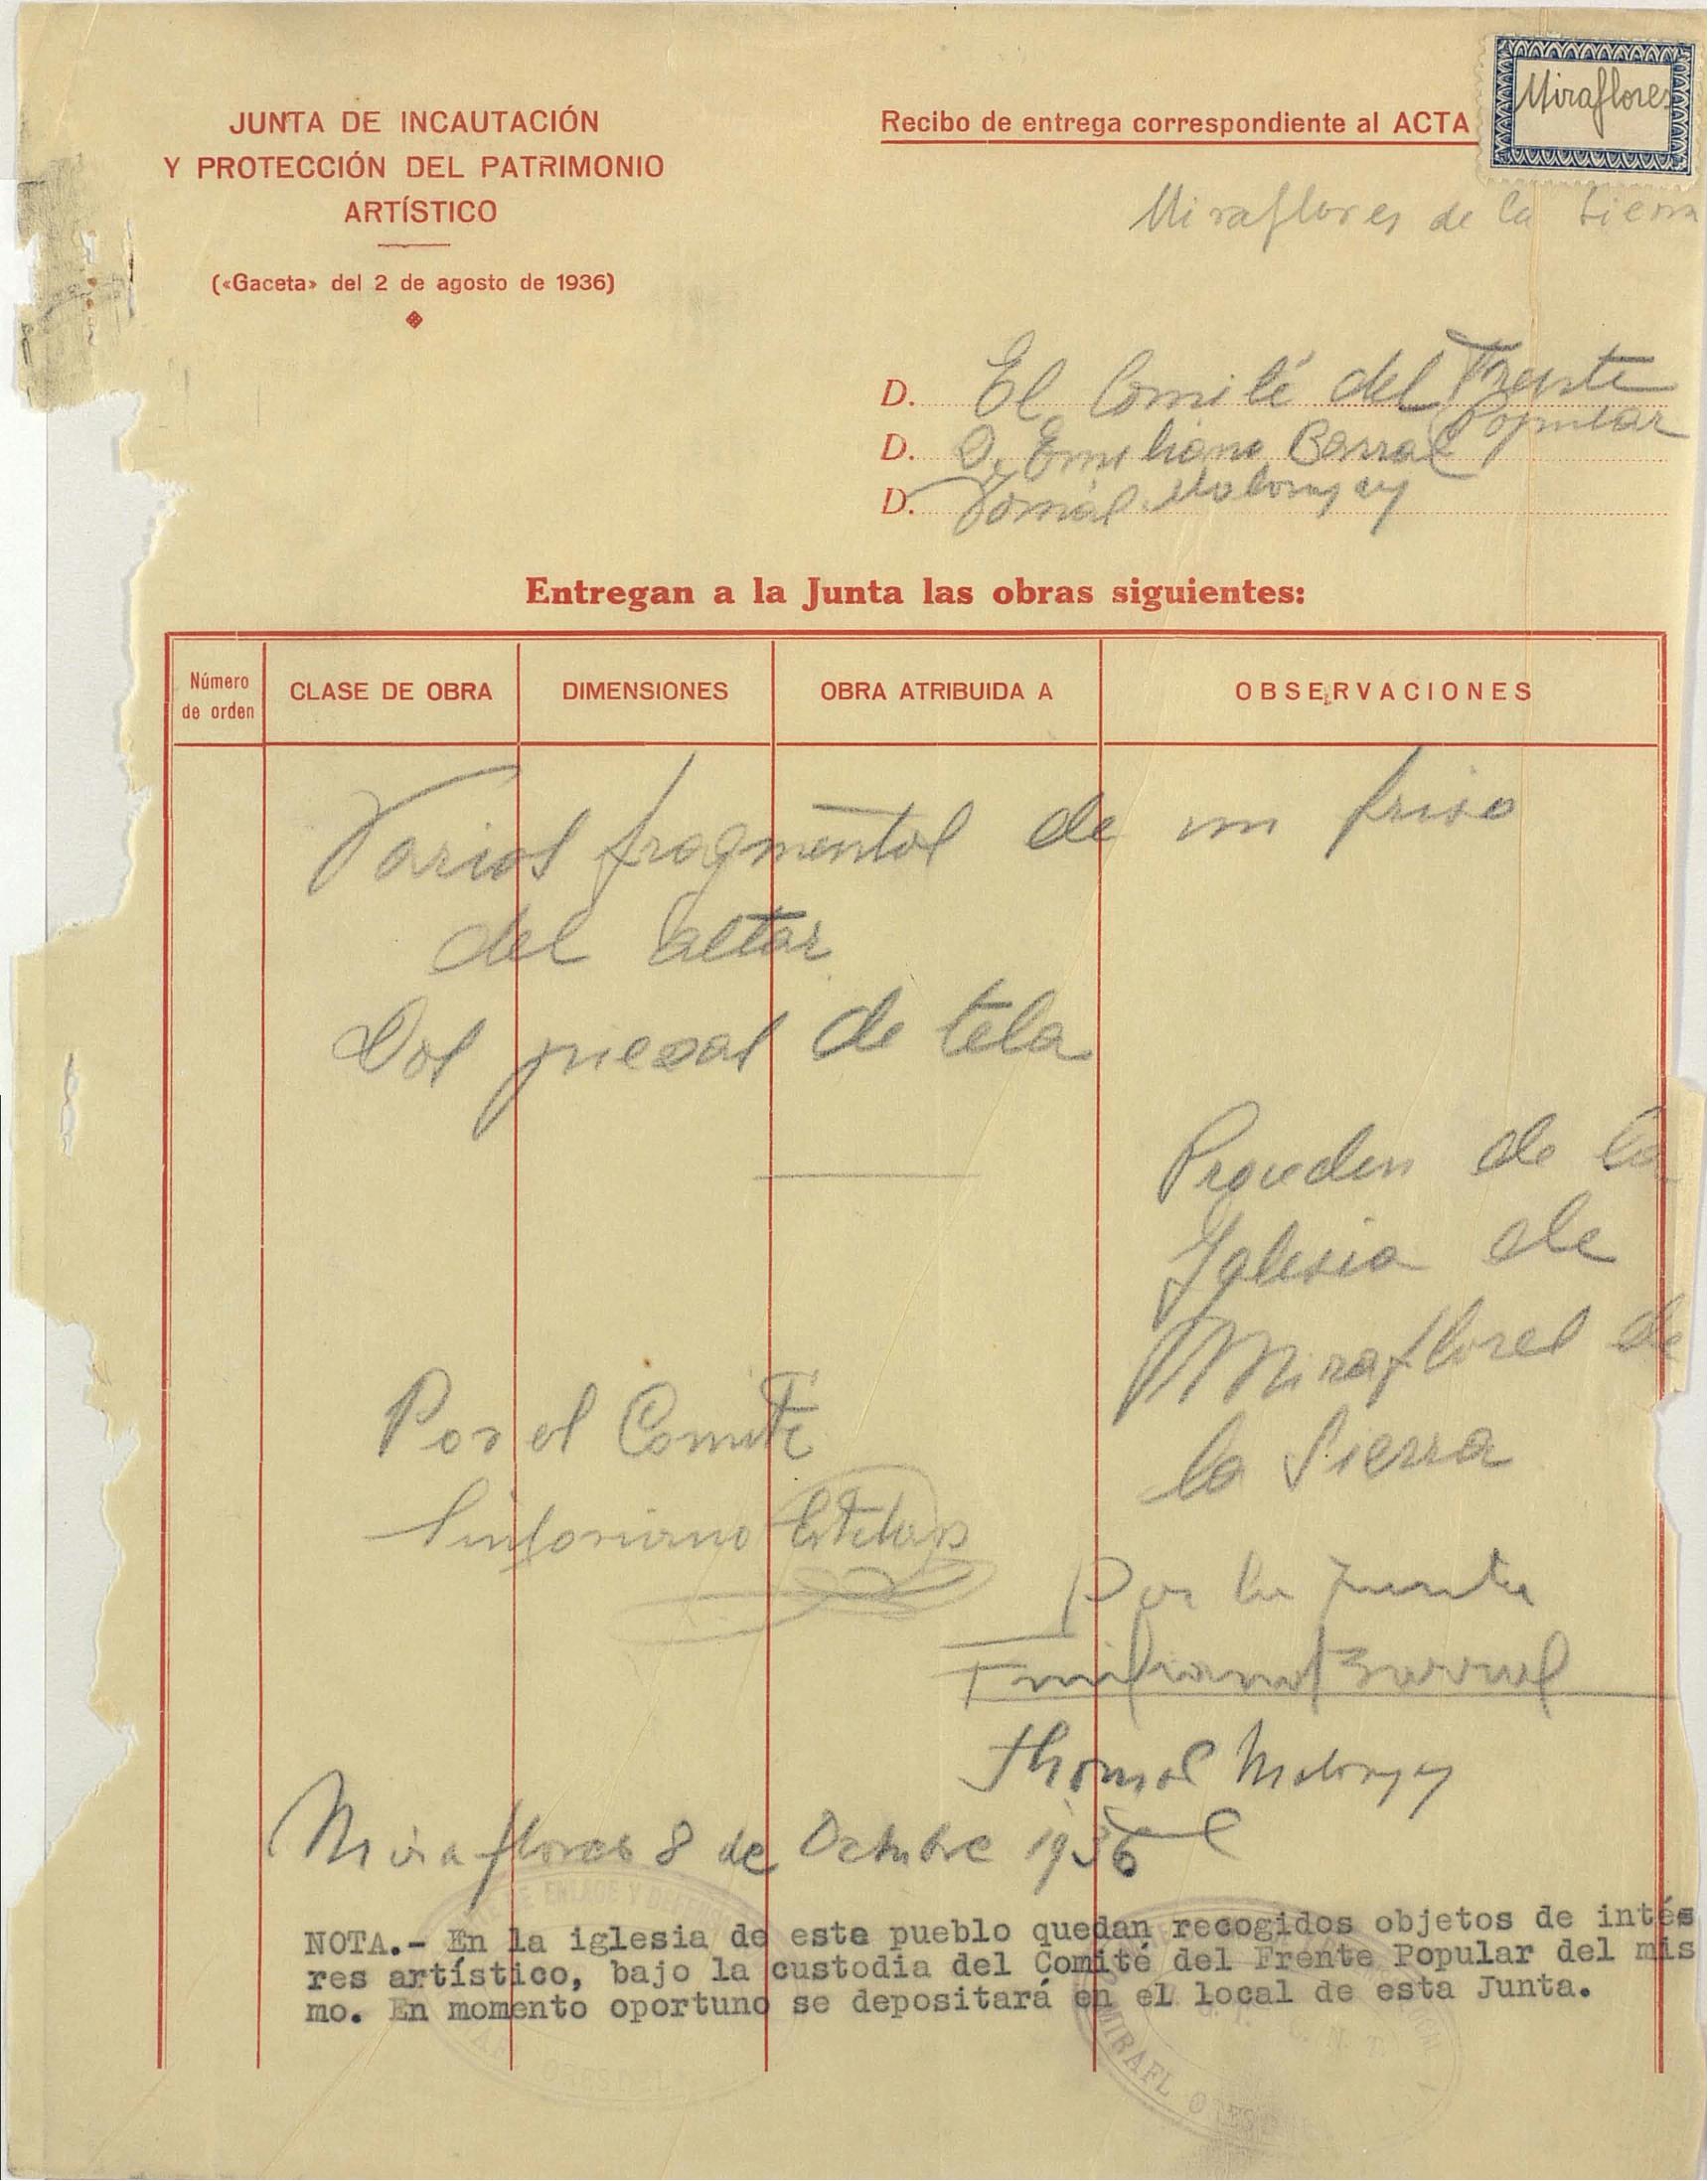 JUNTA DE INCAUTACIÓN
Y PROTECCIÓN DEL PATRIMONIO
ARTÍSTICO
(«Gaceta» del 2 de agosto de 1936)
Recibo de entrega correspondiente al ACTA
Miraflores
Miraflores de la Sierra
D. El Comité del Frente
Popular
D. D. Emiliano Barral
D. Tomás Malonyay
Entregan a la Junta las obras siguientes:
Número de orden
CLASE DE OBRA
DIMENSIONES
OBRA ATRIBUIDA A
OBSERVACIONES
Varios fragmentos de un friso
del altar
Dos piezas de tela
Proceden de la
Iglesia de
Miraflores de
la Sierra
Por el Comité
Sinforiano
Por la Junta
Emiliano Barral
Thomas Malonyay
Miraflores 8 de Octubre 1936
NOTA.- En la iglesia de este pueblo quedan recogidos objetos de inté
res artístico, bajo la custodia del Comité del Frente Popular del mis
mo. En momento oportuno se depositará en el local de esta Junta.
DE ENLACE Y DEFENSA
C. N. T.
MIRAFLORES